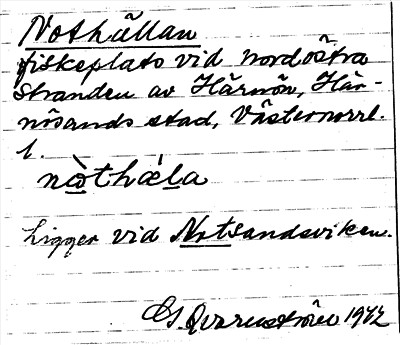 Nothällan
fiskeplats vid nordöstra
stranden av Härnön, Här-
nösands stad, Västernorrl.
l.
nòthǽla
Ligger vid Notsandsviken.
1942